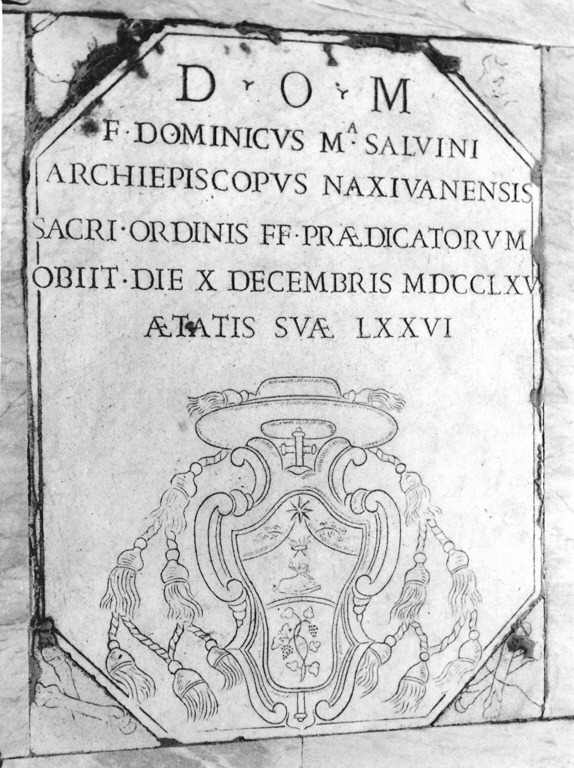 D · O · M
F · DOMINICVS Mᴬ· SALVINI
ARCHIEPISCOPVS NAXIVANENSIS
SACRI · ORDINIS FF · PRÆDICATORVM
OBIIT · DIE X DECEMBRIS MDCCLXV
ÆTATIS SVÆ LXXVI